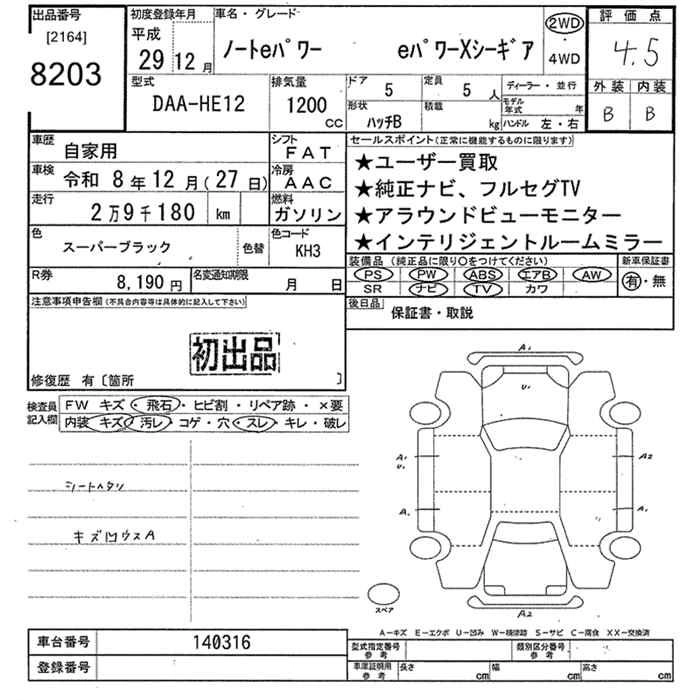 出品番号
[2164]
8203
初度登録年月
平成
29 12 月
車名・グレード
ノートeパワー eパワーXシーギア
2WD
・
4WD
評価点
4.5
外装 内装
B B
型式
DAA-HE12
排気量
1200
CC
ドア
5
定員
5 人
形状
ハッチB
積載
kg
ディーラー・並行
モデル年式 年
ハンドル 左・右
車歴
自家用
シフト
FAT
車検
令和 8年 12月(27日)
冷房
AAC
走行
2万9千180 km
燃料
ガソリン
色
スーパーブラック
色替
色コード
KH3
R券
8,190 円
名変通知期限
月 日
セールスポイント(正常に機能するものに限ります)
★ユーザー買取
★純正ナビ、フルセグTV
★アラウンドビューモニター
★インテリジェントルームミラー
装備品(純正品に限り○をつけてください)
PS PW ABS エアB AW
SR ナビ TV カワ
新車保証書
有・無
後日品
保証書・取説
注意事項申告欄(不具合内容等は具体的に記入して下さい)
初出品
修復歴 有〔箇所 〕
検査員記入欄
FW キズ・飛石・ヒビ割・リペア跡・×要
内装 キズ・汚レ・コゲ・穴・スレ・キレ・破レ
シートヘタリ
キズ凹ウスA
A1
U1
A1
U1
A2
A1
A1
A2
スペア
A-キズ E-エクボ U-凹み W-補修跡 S-サビ C-腐食 XX-交換済
車台番号
140316
登録番号
型式指定番号
参考
類別区分番号
参考
車庫証明用
参考
長さ cm
幅 cm
高さ cm